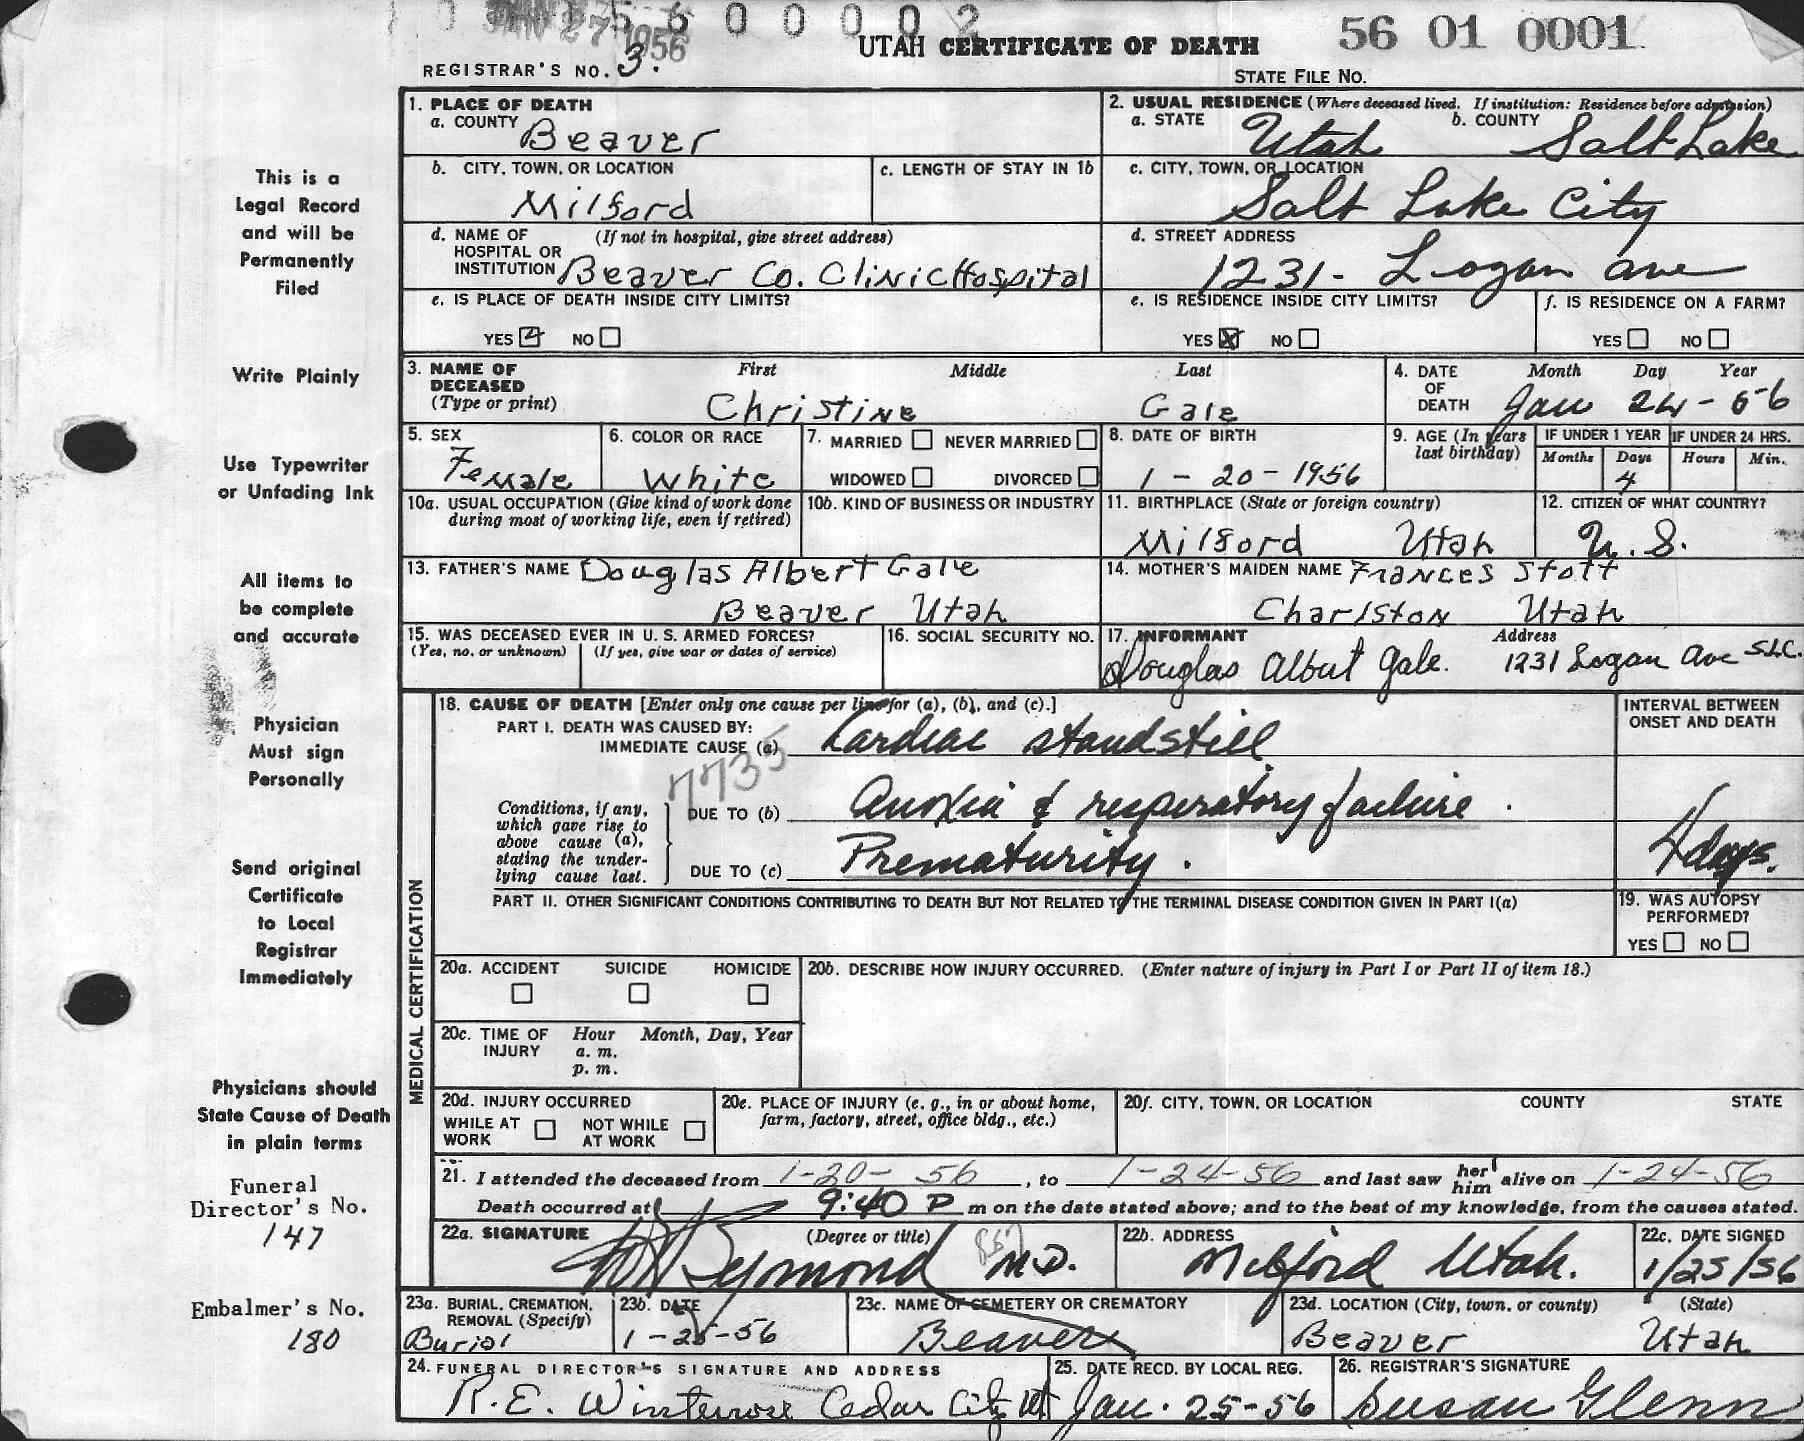 JAN 27 1956
5 6 0 0 0 0 2
56 01 0001
UTAH CERTIFICATE OF DEATH
REGISTRAR'S NO. 3.
STATE FILE NO.
This is a
Legal Record
and will be
Permanently
Filed
Write Plainly
Use Typewriter
or Unfading Ink
All items to
be complete
and accurate
Physician
Must sign
Personally
Send original
Certificate
to Local
Registrar
Immediately
Physicians should
State Cause of Death
in plain terms
Funeral
Director's No.
147
Embalmer's No.
180
1. PLACE OF DEATH
a. COUNTY Beaver
2. USUAL RESIDENCE (Where deceased lived. If institution: Residence before admission)
a. STATE Utah b. COUNTY Salt Lake
b. CITY, TOWN, OR LOCATION
Milford
c. LENGTH OF STAY IN 1b
c. CITY, TOWN, OR LOCATION
Salt Lake City
d. NAME OF (If not in hospital, give street address)
HOSPITAL OR
INSTITUTION Beaver Co. Clinic Hospital
d. STREET ADDRESS
1231- Logan ave
e. IS PLACE OF DEATH INSIDE CITY LIMITS?
YES NO
e. IS RESIDENCE INSIDE CITY LIMITS?
YES X NO
f. IS RESIDENCE ON A FARM?
YES NO
3. NAME OF First Middle Last
DECEASED
(Type or print) Christine Gale
4. DATE Month Day Year
OF
DEATH Jan 24-56
5. SEX
Female
6. COLOR OR RACE
White
7. MARRIED NEVER MARRIED
WIDOWED DIVORCED
8. DATE OF BIRTH
1-20-1956
9. AGE (In years
last birthday)
IF UNDER 1 YEAR IF UNDER 24 HRS.
Months Days Hours Min.
4
10a. USUAL OCCUPATION (Give kind of work done
during most of working life, even if retired)
10b. KIND OF BUSINESS OR INDUSTRY
11. BIRTHPLACE (State or foreign country)
Milford Utah
12. CITIZEN OF WHAT COUNTRY?
U. S.
13. FATHER'S NAME Douglas Albert Gale
Beaver Utah
14. MOTHER'S MAIDEN NAME Frances Stott
Charlston Utah
15. WAS DECEASED EVER IN U. S. ARMED FORCES?
(Yes, no, or unknown) (If yes, give war or dates of service)
16. SOCIAL SECURITY NO.
17. INFORMANT Address
Douglas Albert Gale. 1231 Logan Ave SLC.
MEDICAL CERTIFICATION
18. CAUSE OF DEATH [Enter only one cause per line for (a), (b), and (c).]
PART I. DEATH WAS CAUSED BY:
IMMEDIATE CAUSE (a) Cardiac standstill
7735
INTERVAL BETWEEN
ONSET AND DEATH
Conditions, if any,
which gave rise to
above cause (a),
stating the under-
lying cause last.
DUE TO (b) Anoxia & respiratory failure.
DUE TO (c) Prematurity.
4 days.
PART II. OTHER SIGNIFICANT CONDITIONS CONTRIBUTING TO DEATH BUT NOT RELATED TO THE TERMINAL DISEASE CONDITION GIVEN IN PART I(a)
19. WAS AUTOPSY
PERFORMED?
YES NO
20a. ACCIDENT SUICIDE HOMICIDE
20b. DESCRIBE HOW INJURY OCCURRED. (Enter nature of injury in Part I or Part II of item 18.)
20c. TIME OF Hour Month, Day, Year
INJURY a. m.
p. m.
20d. INJURY OCCURRED
WHILE AT NOT WHILE
WORK AT WORK
20e. PLACE OF INJURY (e. g., in or about home,
farm, factory, street, office bldg., etc.)
20f. CITY, TOWN, OR LOCATION COUNTY STATE
21. I attended the deceased from 1-20-56, to 1-24-56 and last saw her him alive on 1-24-56
Death occurred at 9:40 P m on the date stated above; and to the best of my knowledge, from the causes stated.
22a. SIGNATURE (Degree or title)
Symond M.D.
22b. ADDRESS
Milford Utah.
22c. DATE SIGNED
1/25/56
23a. BURIAL, CREMATION,
REMOVAL (Specify)
Burial
23b. DATE
1-25-56
23c. NAME OF CEMETERY OR CREMATORY
Beaver
23d. LOCATION (City, town, or county) (State)
Beaver Utah
24. FUNERAL DIRECTOR'S SIGNATURE AND ADDRESS
R. E. Winterrose Cedar City Ut
25. DATE RECD. BY LOCAL REG.
Jan. 25-56
26. REGISTRAR'S SIGNATURE
Susan Glenn